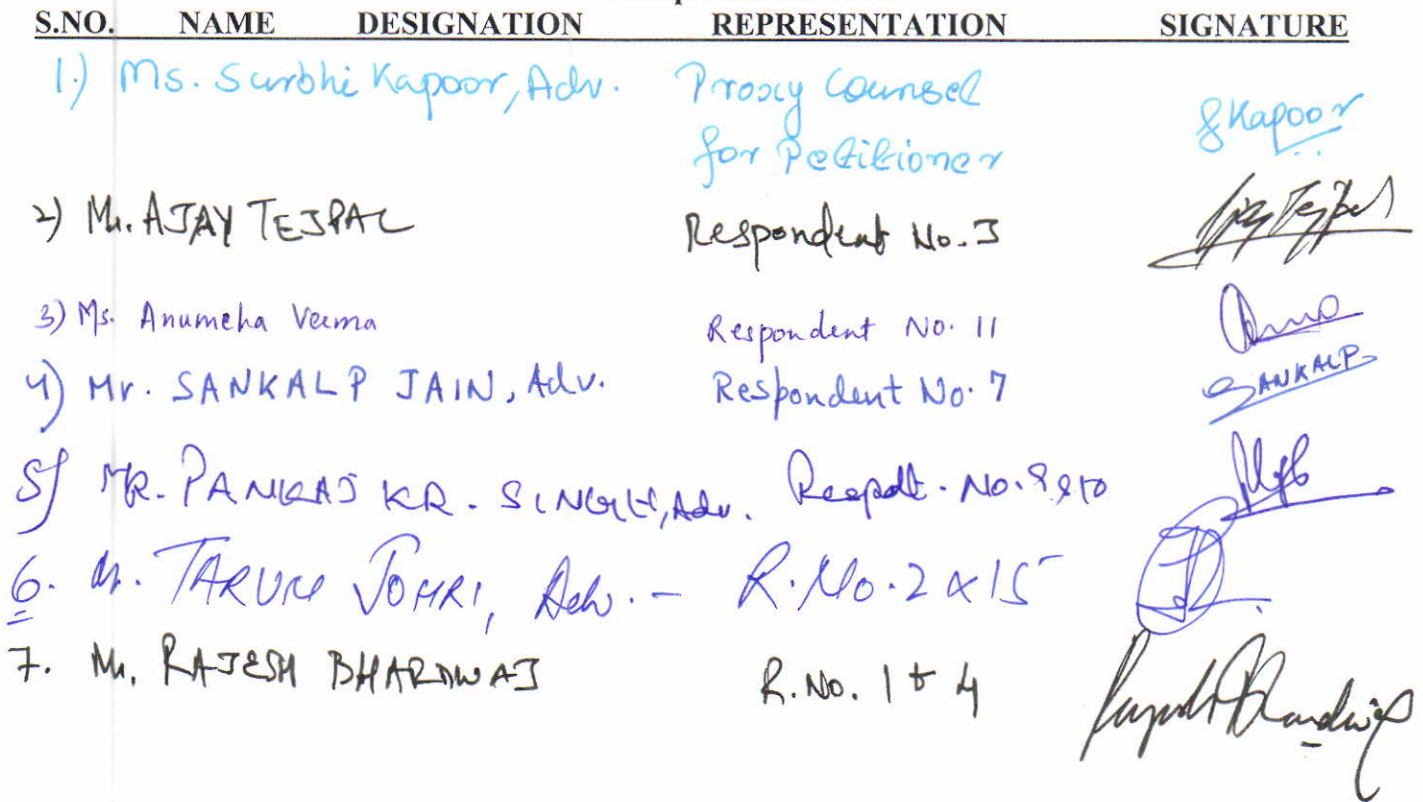 S.NO. NAME DESIGNATION REPRESENTATION SIGNATURE
1.) Ms. Surbhi Kapoor, Adv. Proxy Counsel SKapoor
for Petitioner
2) Mr. AJAY TEJPAL Respondent No. 3 Ajay Tejpal
3) Ms. Anumeha Verma Respondent No. 11
4) Mr. SANKALP JAIN, Adv. Respondent No. 7 SANKALP
5) MR. PANKAJ KR. SINGH, Adv. Respdt. No. 9 & 10
6. Mr. TARUN JOHRI, Adv. - R. No. 2 & 15
7. Mr. RAJESH BHARDWAJ R. No. 1 & 4 Rajesh Bhardwaj